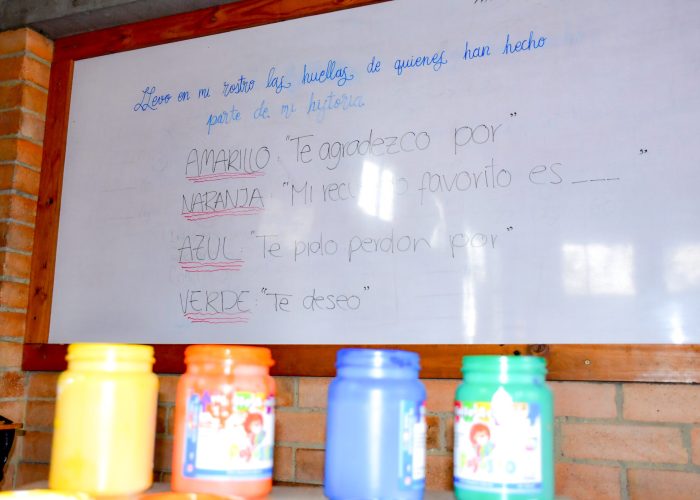 LLevo en mi rostro las huellas de quienes han hecho
parte de mi hystoria
AMARILLO: "Te agradezco por"
NARANJA: "Mi recuerdo favorito es ___ "
AZUL: "Te pido perdon por"
VERDE: "Te deseo"